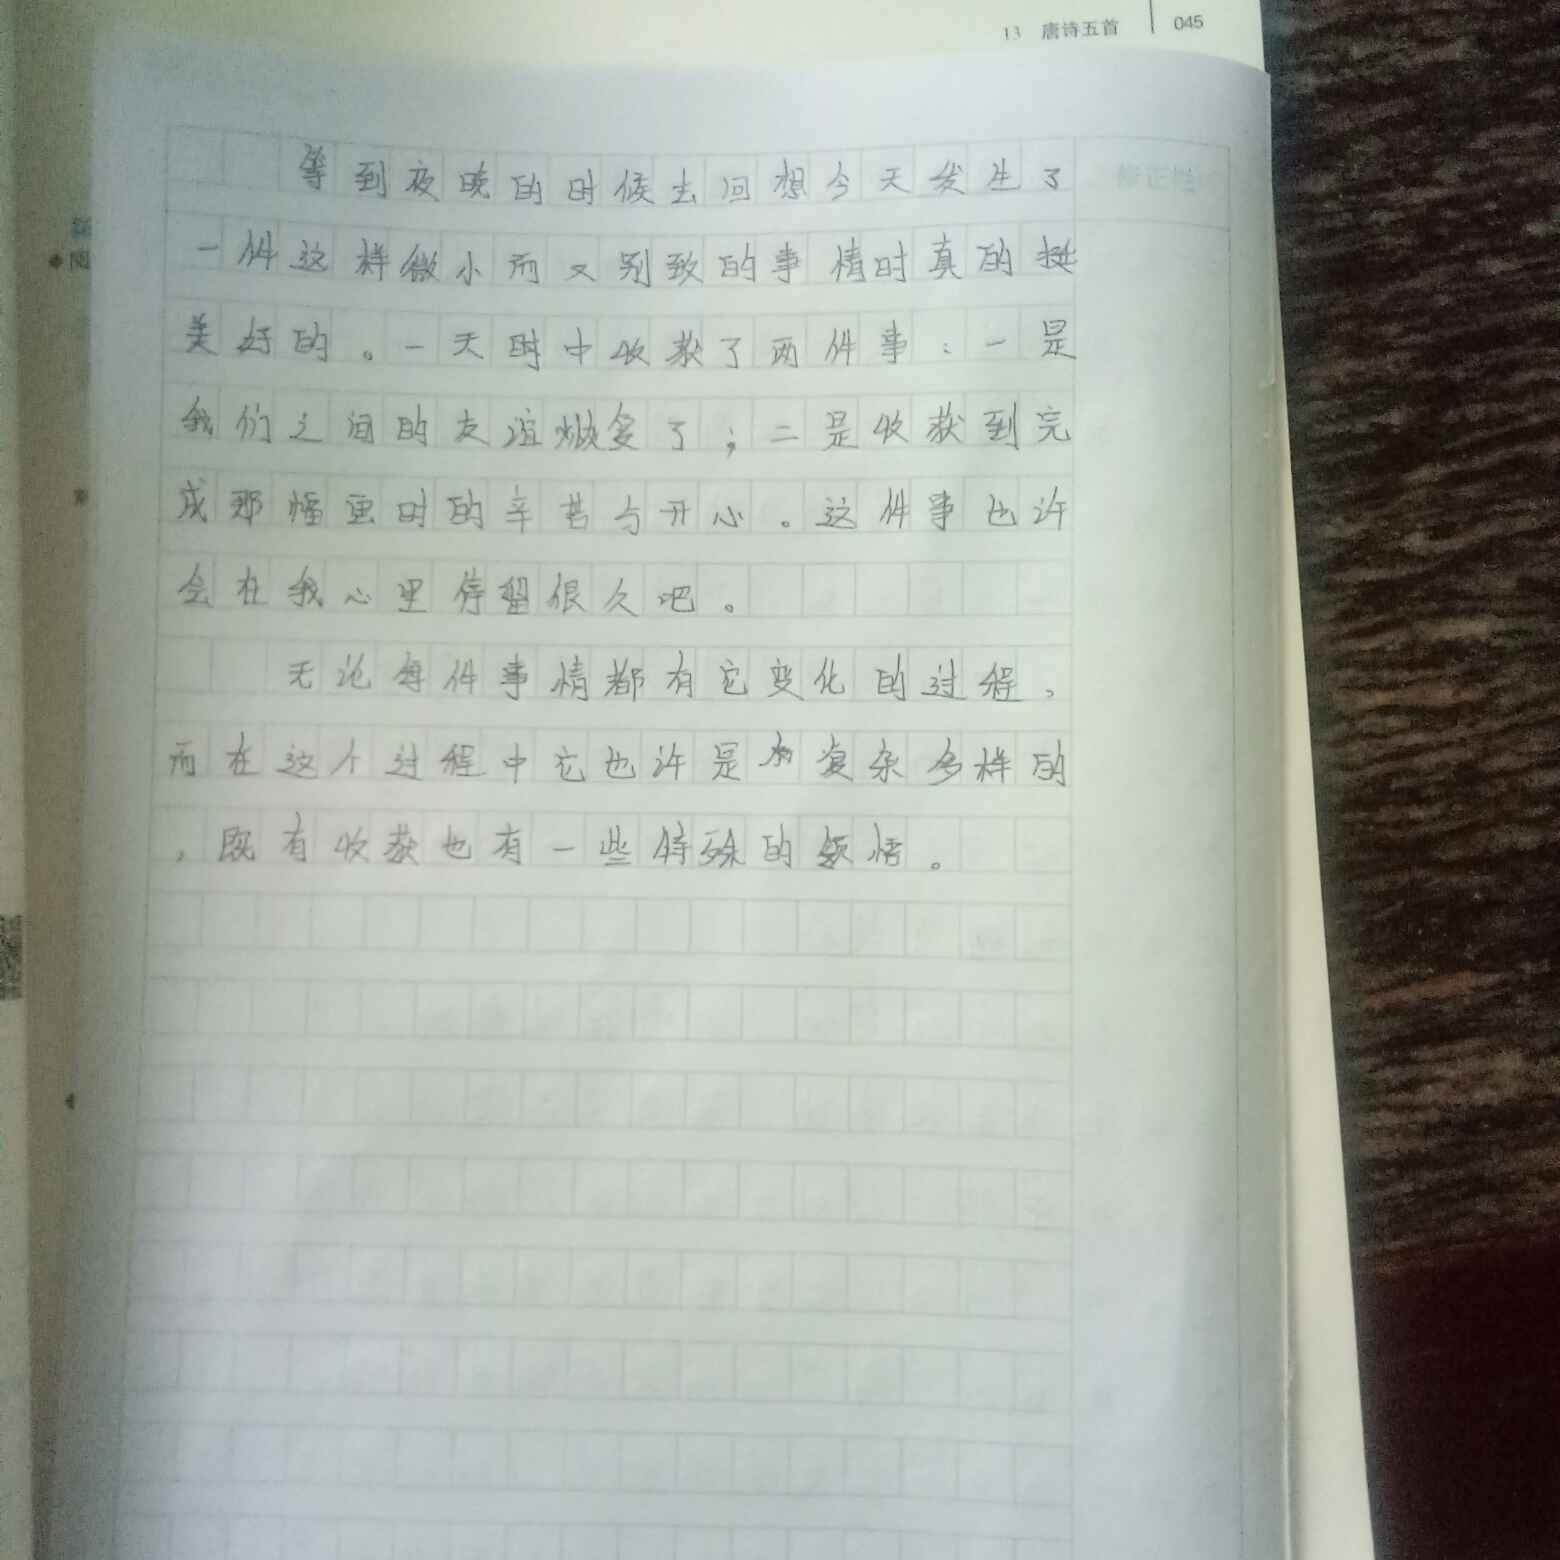 13 唐诗五首 045
修正栏
等到夜晚的时候去回想今天发生了
一件这样微小而又别致的事情时真的挺
美好的。一天时中收获了两件事：一是
我们之间的友谊燃复了；二是收获到完
成那幅画时的辛苦与开心。这件事也许
会在我心里停留很久吧。
无论每件事情都有它变化的过程，
而在这个过程中它也许是复杂多样的
，既有收获也有一些特殊的领悟。